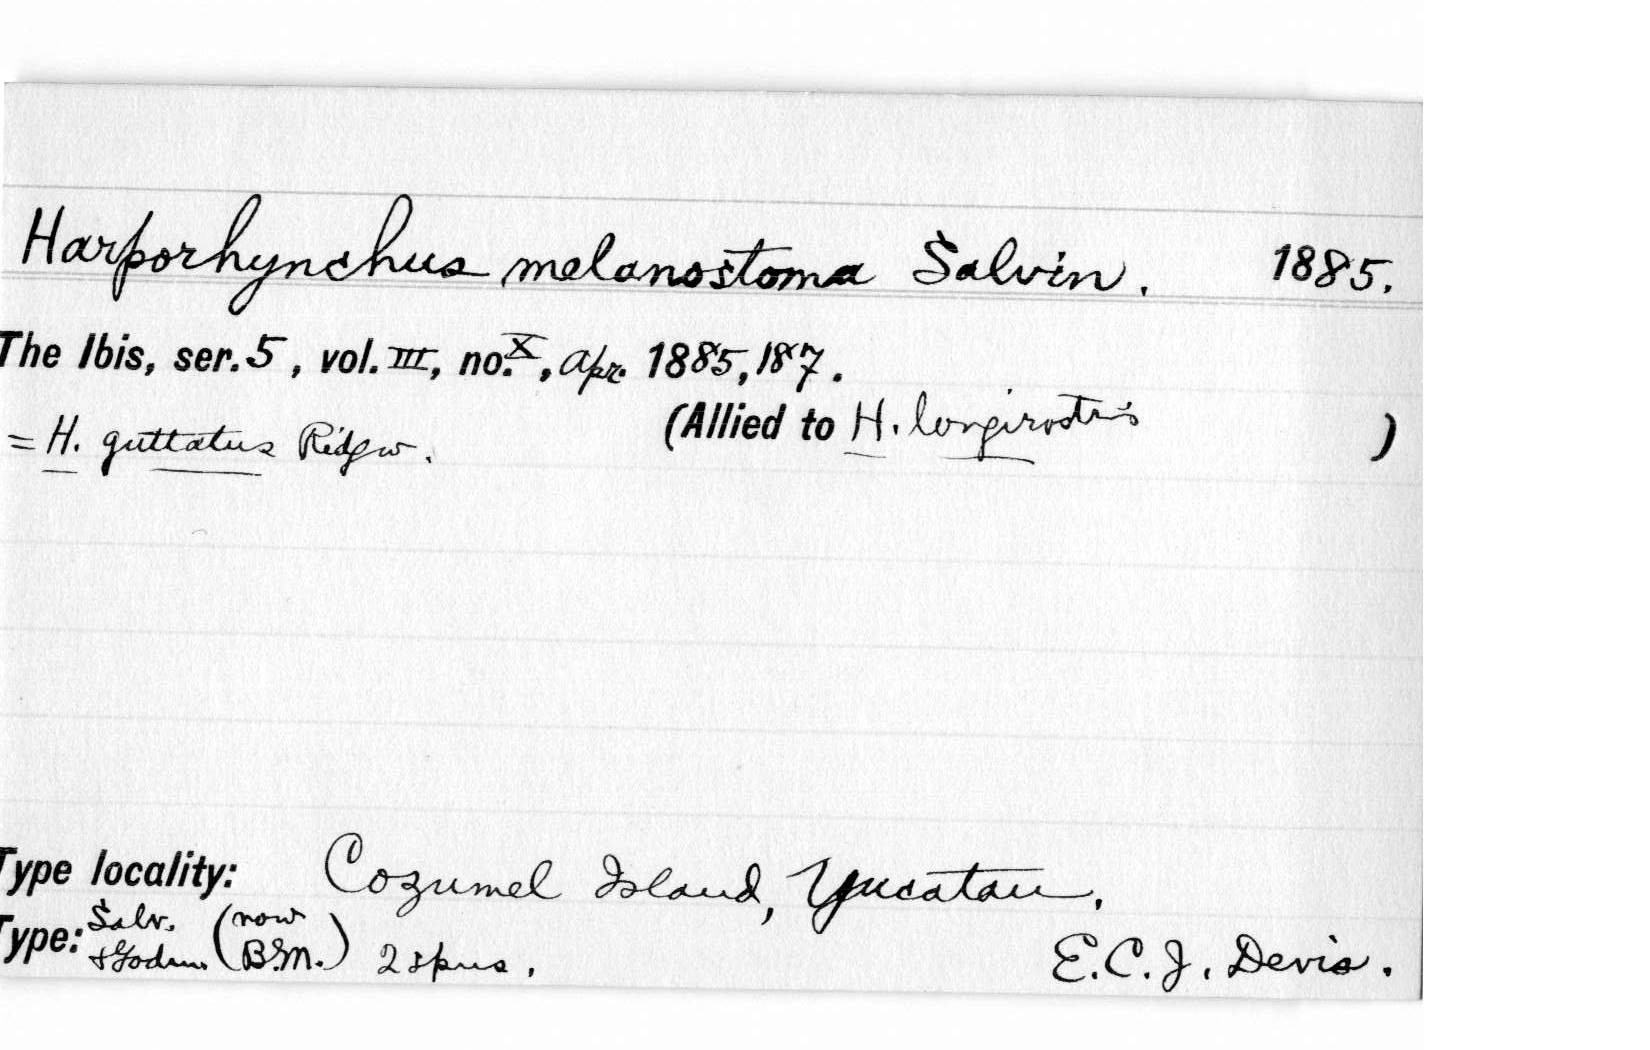 Harporhynchus melanostoma Salvin. 1885.
The Ibis, ser. 5, vol. III, no. X, Apr. 1885, 187.
(Allied to H. longirostris )
= H. guttatus Ridgw.
Type locality: Cozumel Island, Yucatan.
Type: Salv. & Godm. (now B.M.) 2 spns. E.C.J. Devis.